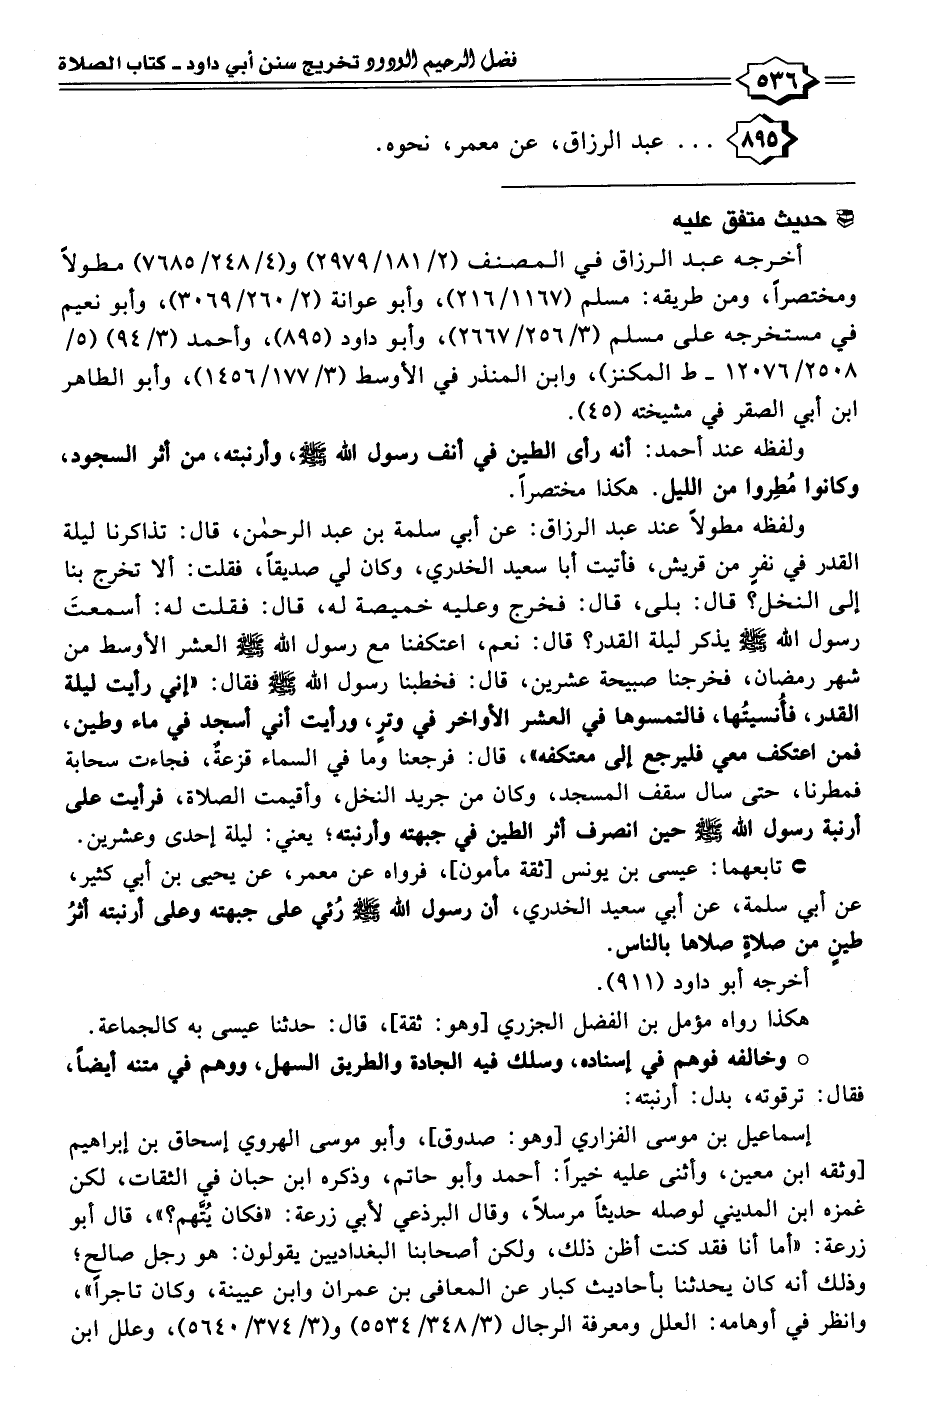 فضل الرحيم الودود تخريج سنن أبي داود - كتاب الصلاة
٥٣٦
٨٩٥ ... عبد الرزاق، عن معمر، نحوه.
حديث متفق عليه
أخرجه عبد الرزاق في المصنف (٢/ ١٨١/ ٢٩٧٩) و(٤/ ٢٤٨/ ٧٦٨٥) مطولاً
ومختصراً، ومن طريقه: مسلم (١١٦٧/ ٢١٦)، وأبو عوانة (٢/ ٢٦٠/ ٣٠٦٩)، وأبو نعيم
في مستخرجه على مسلم (٣/ ٢٥٦/ ٢٦٦٧)، وأبو داود (٨٩٥)، وأحمد (٣/ ٩٤) (٥/
٢٥٠٨/ ١٢٠٧٦ - ط المكنز)، وابن المنذر في الأوسط (٣/ ١٧٧/ ١٤٥٦)، وأبو الطاهر
ابن أبي الصقر في مشيخته (٤٥).
ولفظه عند أحمد: أنه رأى الطين في أنف رسول الله ﷺ، وأرنبته، من أثر السجود،
وكانوا مُطِروا من الليل. هكذا مختصراً.
ولفظه مطولاً عند عبد الرزاق: عن أبي سلمة بن عبد الرحمٰن، قال: تذاكرنا ليلة
القدر في نفرٍ من قريش، فأتيت أبا سعيد الخدري، وكان لي صديقاً، فقلت: ألا تخرج بنا
إلى النخل؟ قال: بلى، قال: فخرج وعليه خميصة له، قال: فقلت له: أسمعتَ
رسول الله ﷺ يذكر ليلة القدر؟ قال: نعم، اعتكفنا مع رسول الله ﷺ العشر الأوسط من
شهر رمضان، فخرجنا صبيحة عشرين، قال: فخطبنا رسول الله ﷺ فقال: «إني رأيت ليلة
القدر، فأُنسيتُها، فالتمسوها في العشر الأواخر في وترٍ، ورأيت أني أسجد في ماء وطين،
فمن اعتكف معي فليرجع إلى معتكفه»، قال: فرجعنا وما في السماء قزعةٌ، فجاءت سحابة
فمطرنا، حتى سال سقف المسجد، وكان من جريد النخل، وأقيمت الصلاة، فرأيت على
أرنبة رسول الله ﷺ حين انصرف أثر الطين في جبهته وأرنبته؛ يعني: ليلة إحدى وعشرين.
تابعهما: عيسى بن يونس [ثقة مأمون]، فرواه عن معمر، عن يحيى بن أبي كثير،
عن أبي سلمة، عن أبي سعيد الخدري، أن رسول الله ﷺ رُئي على جبهته وعلى أرنبته أثرُ
طينٍ من صلاةٍ صلاها بالناس.
أخرجه أبو داود (٩١١).
هكذا رواه مؤمل بن الفضل الجزري [وهو: ثقة]، قال: حدثنا عيسى به كالجماعة.
○ وخالفه فوهم في إسناده، وسلك فيه الجادة والطريق السهل، ووهم في متنه أيضاً،
فقال: ترقوته، بدل: أرنبته:
إسماعيل بن موسى الفزاري [وهو: صدوق]، وأبو موسى الهروي إسحاق بن إبراهيم
[وثقه ابن معين، وأثنى عليه خيراً: أحمد وأبو حاتم، وذكره ابن حبان في الثقات، لكن
غمزه ابن المديني لوصله حديثاً مرسلاً، وقال البرذعي لأبي زرعة: «فكان يُتَّهم؟»، قال أبو
زرعة: «أما أنا فقد كنت أظن ذلك، ولكن أصحابنا البغداديين يقولون: هو رجل صالح؛
وذلك أنه كان يحدثنا بأحاديث كبار عن المعافى بن عمران وابن عيينة، وكان تاجراً»،
وانظر في أوهامه: العلل ومعرفة الرجال (٣/ ٣٤٨/ ٥٥٣٤) و(٣/ ٣٧٤/ ٥٦٤٠)، وعلل ابن